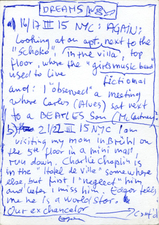 DREAMS
16/17 III 15 NYC: AGAIN:
Looking at an apt. next to the
"School", in the village, top
floor, where the "girlsmusic band
used to live fictional
and: I "observed" a meeting
where Carlos (Alves) sat next
to a BEATLES Son (McCartney)
21/22 III 15 NYC I am
visiting my mom in Brühl on
the floor in a mini mall
run down. Charlie Chaplin is
in the "Hotel de Ville" somewhere
else, but first I neglect him
and later I miss him. Edgar tells
me he is a
Our exchancelor